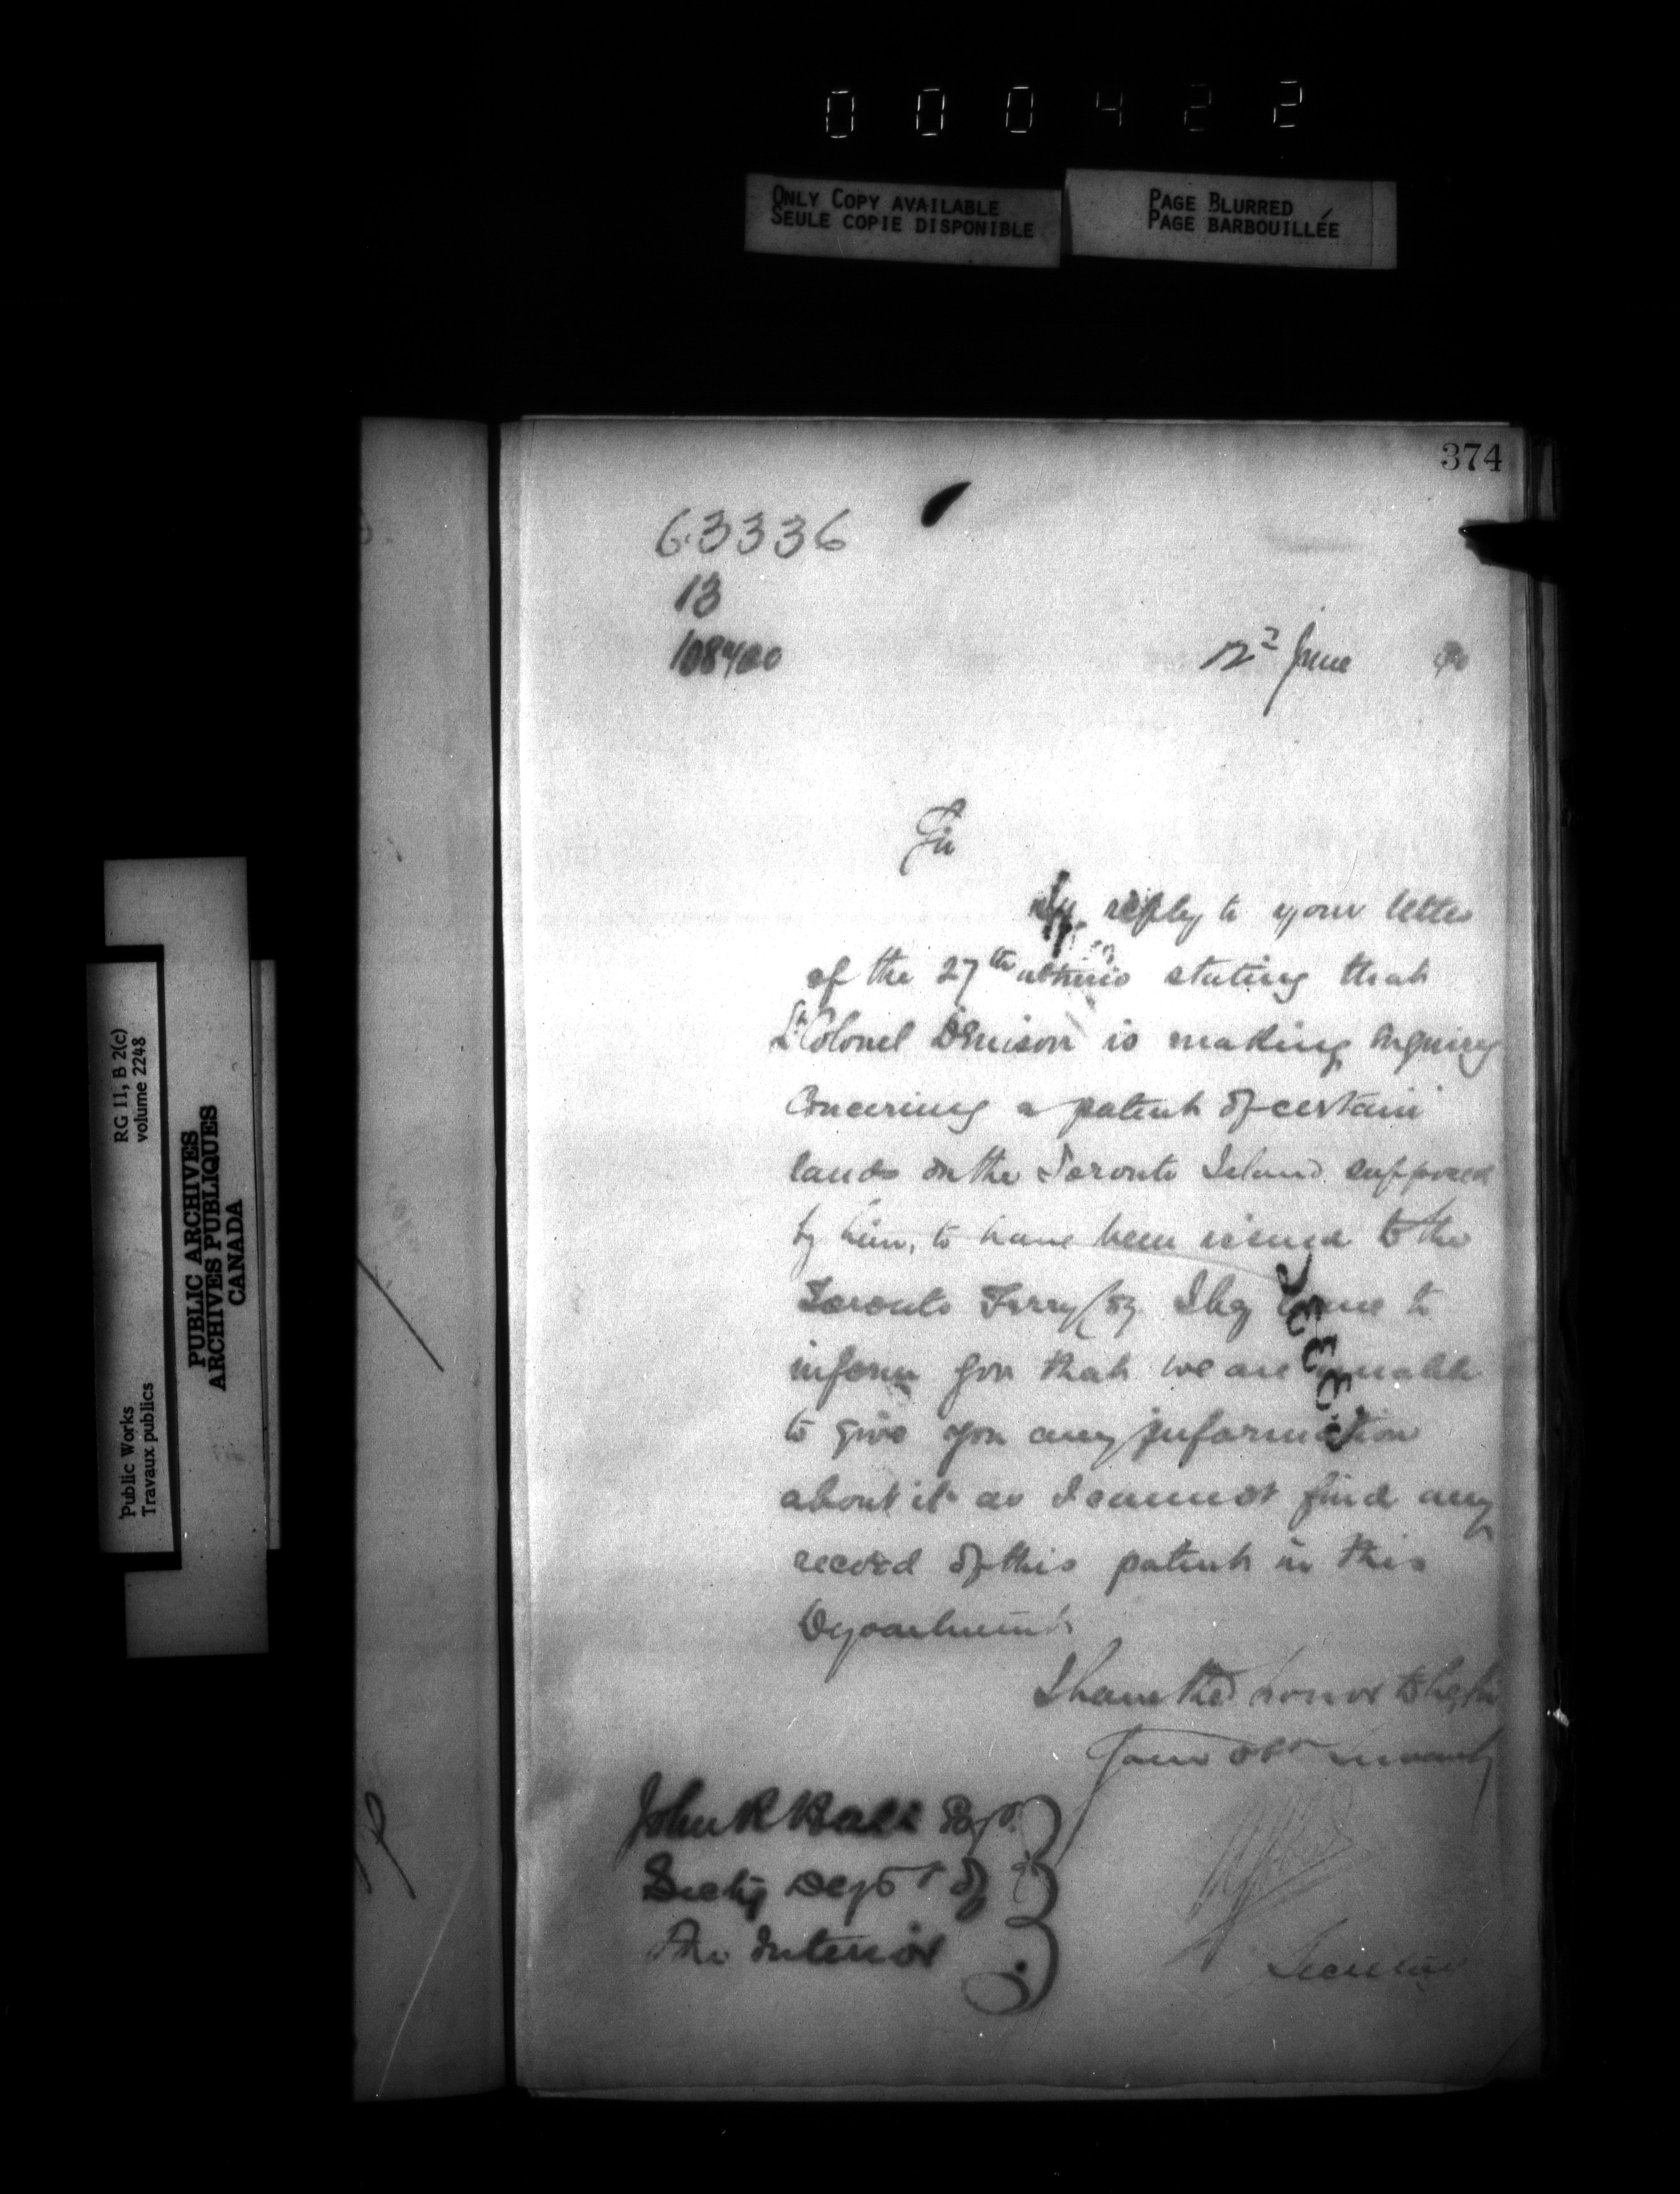 000422
ONLY COPY AVAILABLE
SEULE COPIE DISPONIBLE
PAGE BLURRED
PAGE BARBOUILLÉE
374
63336
13
108400
12 June 90
Sir
reply to your letter
of the 27th ultimo stating that
Lt Colonel Denison is making inquiry
Concerning a patent of certain
lands on the Toronto Island supposed
by him, to have been issued to the
Toronto Ferry Coy. I beg leave to
inform you that we are unable
to give you any information
about it as I cannot find any
record of this patent in this
Department
I have the honor to be Sir
Your obt servant
John R Hall Esqr.
Secty Dept of
The Interior
Secretary
Public Works
Travaux publics
RG 11, B 2(c)
volume 2248
PUBLIC ARCHIVES
ARCHIVES PUBLIQUES
CANADA